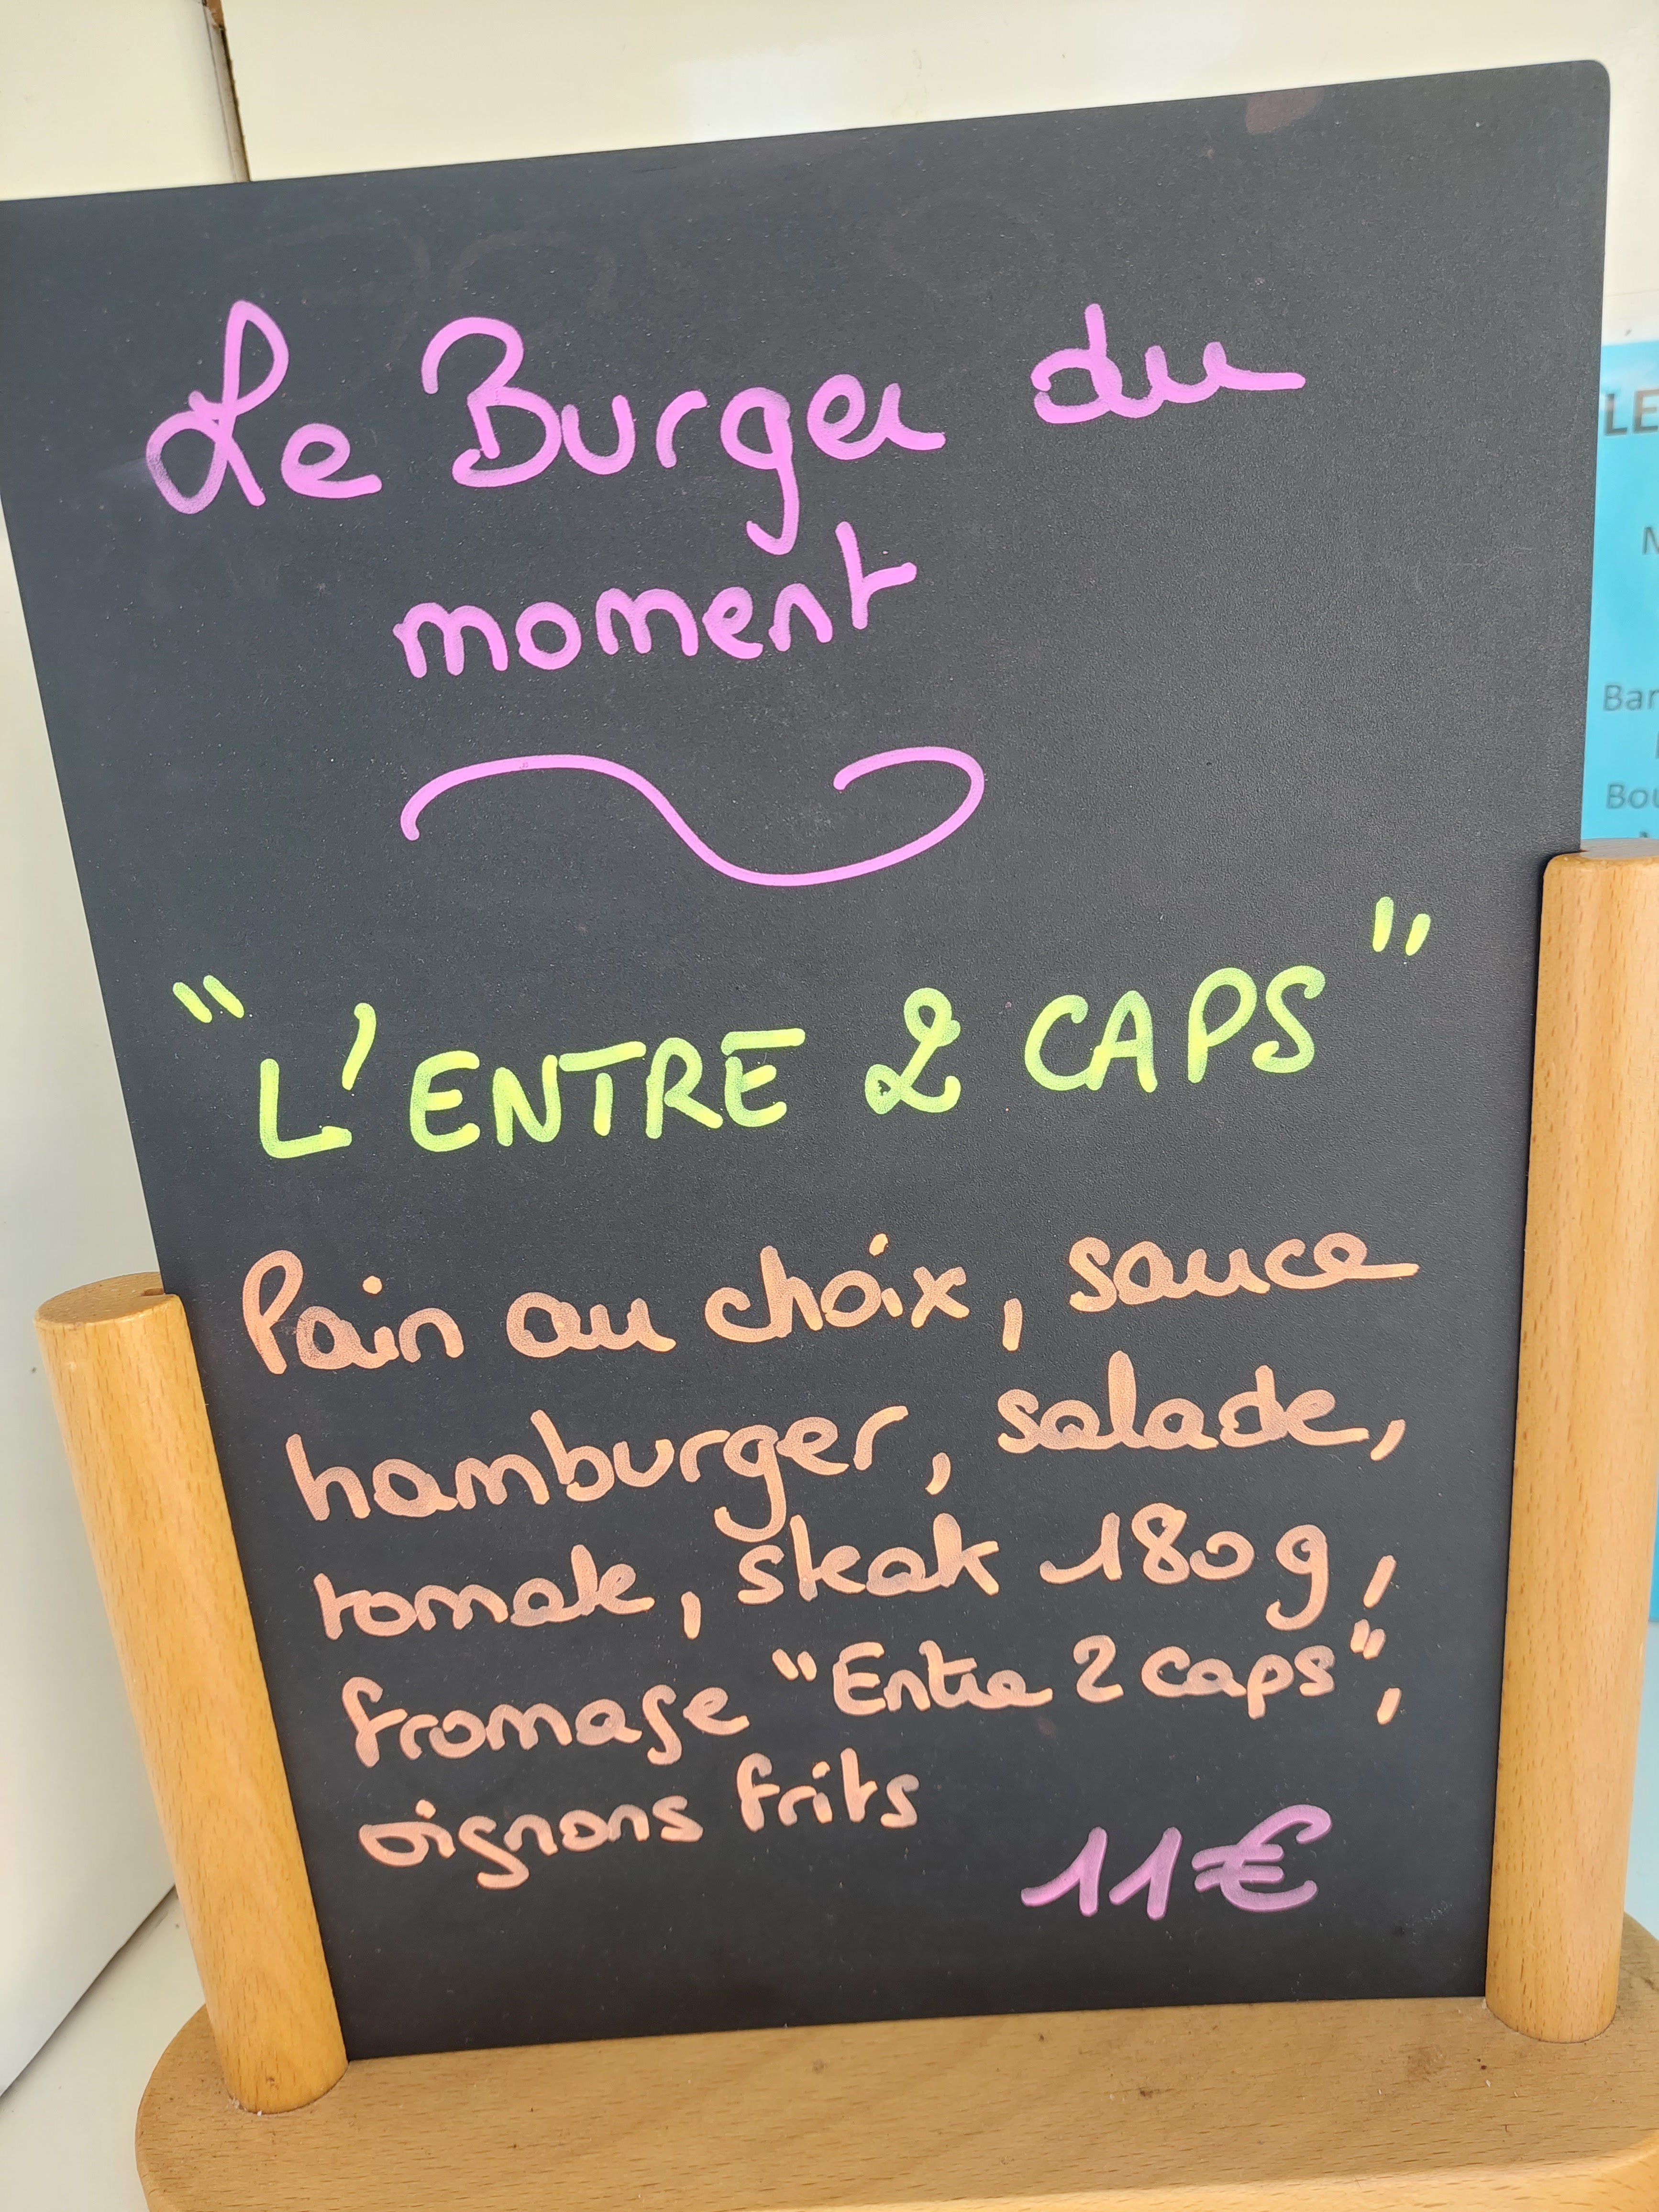 Le Burger du
moment
"L'ENTRE 2 CAPS"
Pain au choix, sauce
hamburger, salade,
tomate, steak 180g,
fromage "Entre 2 caps",
oignons frits
11€
LE